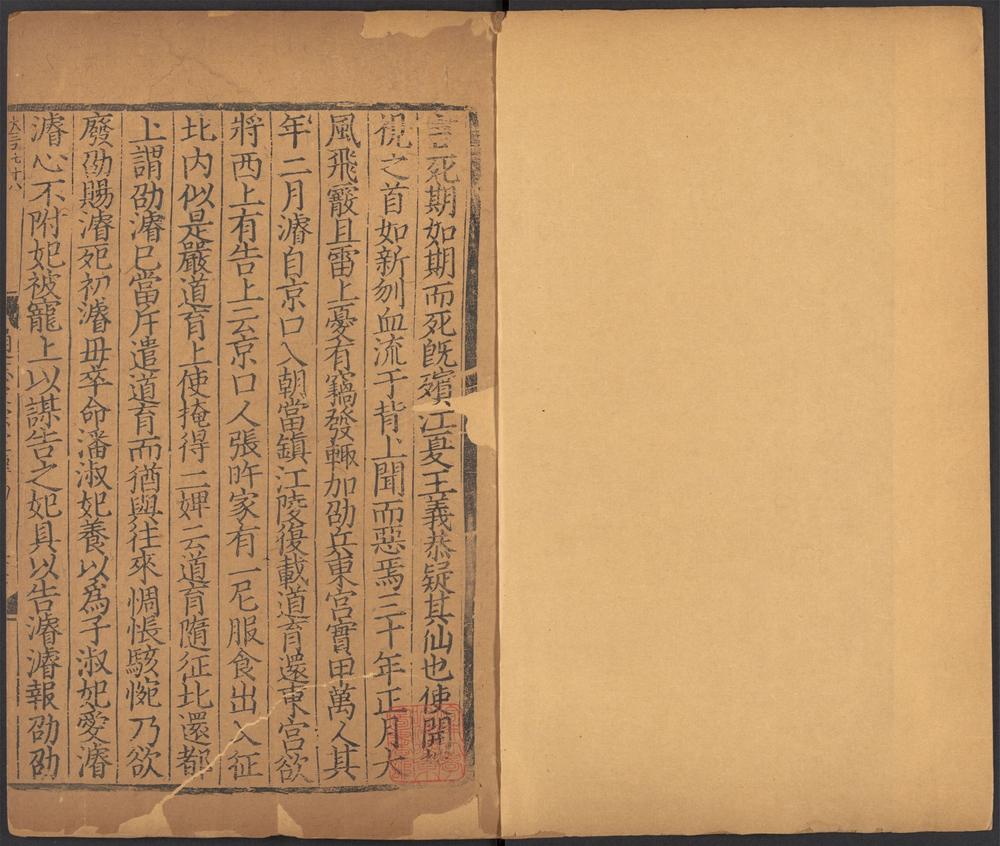 言死期如期而死旣殯江夏王義恭疑其仙也使開
視之首如新刎血流于背上聞而惡焉三十年正月大
風飛霰且雷上憂有竊發輙加劭兵東宮實甲萬人其
年二月濬自京口入朝當鎮江陵復載道育還東宮欲
將西上有告上云京口人張旿家有一尼服食出入征
北内似是嚴道育上使掩得二婢云道育隨征北還都
上謂劭濬已當斥遣道育而猶與往來惆悵駭惋乃欲
廢劭賜濬死初濬毋卒命潘淑妃養以爲子淑妃愛濬
濬心不附妃被寵上以謀告之妃具以告濬濬報劭劭